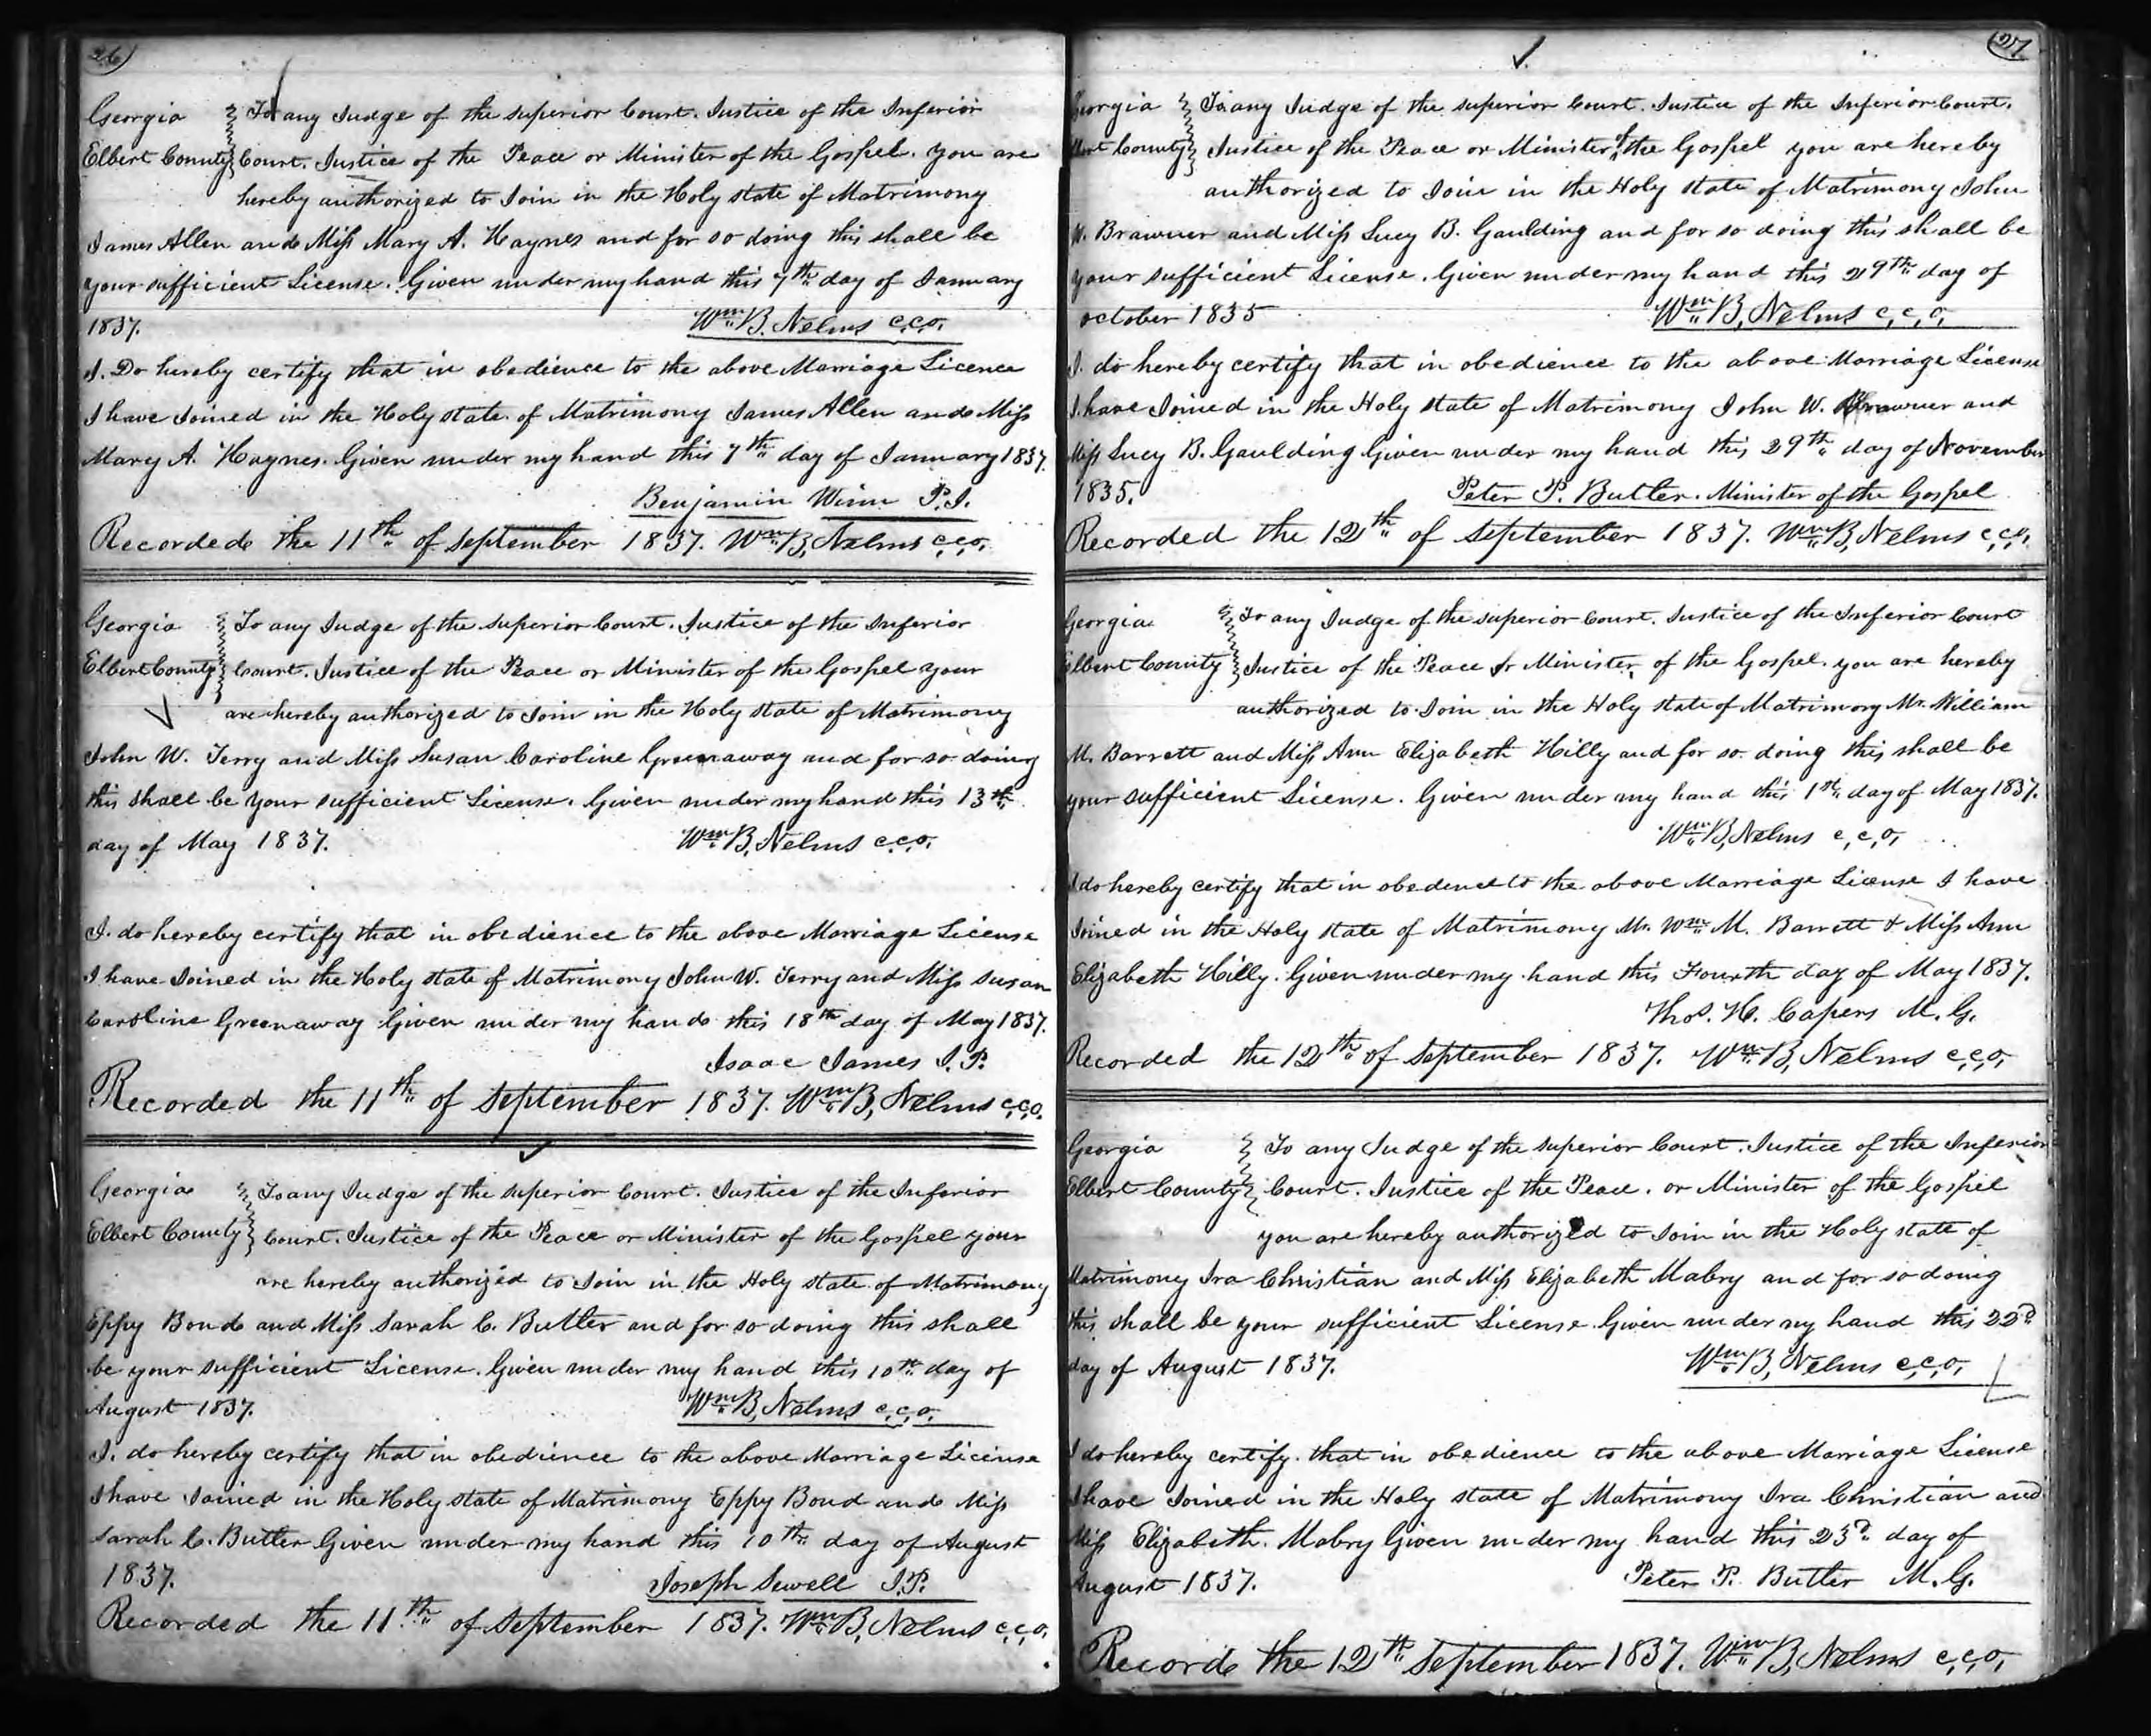 26
Georgia To any Judge of the superior Court. Justice of the Inferior
Elbert County Court. Justice of the Peace or Minister of the Gospel. you are
hereby authorized to Join in the Holy state of Matrimony
James Allen and Miss Mary A. Haynes and for so doing this shall be
your sufficient License. Given under my hand this 7th day of January
1837. Wm B. Nelms c.c.o.
I. Do hereby certify that in obedience to the above Marriage Licence
I have Joined in the Holy state of Matrimony James Allen and Miss
Mary A. Haynes. Given under my hand this 7th day of January 1837.
Benjamin Winn J.P.
Recorded the 11th of September 1837. Wm B, Nelms c.c.o.
Georgia To any Judge of the superior Court. Justice of the Inferior
Elbert County Court. Justice of the Peace or Minister of the Gospel your
are hereby authorized to Join in the Holy state of Matrimony
John W. Terry and Miss Susan Caroline Greenaway and for so doing
this shall be your sufficient License. Given under my hand this 13th
day of May 1837. Wm B, Nelms c.c.o.
I. do hereby certify that in obedience to the above Marriage License
I have Joined in the Holy state of Matrimony John W. Terry and Miss Susan
Caroline Greenaway Given under my hand this 18th day of May 1837.
Isaac James J.P.
Recorded the 11th of September 1837. Wm B, Nelms c.c.o.
Georgia To any Judge of the superior Court. Justice of the Inferior
Elbert County Court. Justice of the Peace or Minister of the Gospel your
are hereby authorized to Join in the Holy state of Matrimony
Eppy Bond and Miss Sarah C. Butler and for so doing this shall
be your sufficient License. Given under my hand this 10th day of
August 1837. Wm B, Nelms c.c.o.
I. do hereby certify that in obedience to the above Marriage License
I have Joined in the Holy state of Matrimony Eppy Bond and Miss
Sarah C. Butler Given under my hand this 10th day of August
1837. Joseph Sewell J.P.
Recorded the 11th of September 1837. Wm B, Nelms c.c.o.
27
Georgia To any Judge of the superior Court. Justice of the Inferior Court.
Elbert County Justice of the Peace or Minister of the Gospel you are hereby
authorized to Join in the Holy state of Matrimony John
W. Brawner and Miss Lucy B. Gaulding and for so doing this shall be
your sufficient License. Given under my hand this 29th day of
october 1835 Wm B, Nelms c,c,o,
I. do hereby certify that in obedience to the above Marriage License
I have Joined in the Holy state of Matrimony John W. Brawner and
Miss Lucy B. Gaulding Given under my hand this 29th day of November
1835. Peter P. Butler. Minister of the Gospel
Recorded the 12th of September 1837. Wm B, Nelms c,c,o,
Georgia To any Judge of the superior Court. Justice of the Inferior Court
Elbert County Justice of the Peace or Minister of the Gospel. you are hereby
authorized to Join in the Holy state of Matrimony Mr. William
M. Barrett and Miss Ann Elizabeth Hilly and for so doing this shall be
your sufficient License. Given under my hand this 1st day of May 1837.
Wm B, Nelms c,c,o,
I do hereby certify that in obedience to the above Marriage License I have
Joined in the Holy state of Matrimony Mr. Wm M. Barrett & Miss Ann
Elizabeth Hilly. Given under my hand this Fourth day of May 1837.
Thos. H. Capers M.G.
Recorded the 12th of September 1837. Wm B, Nelms c,c,o,
Georgia To any Judge of the superior Court. Justice of the Inferior
Elbert County Court. Justice of the Peace. or Minister of the Gospel
you are hereby authorized to Join in the Holy state of
Matrimony Ira Christian and Miss Elizabeth Mabry and for so doing
this shall be your sufficient License Given under my hand this 22d
day of August 1837. Wm B, Nelms c,c,o,
I do hereby certify. that in obedience to the above Marriage License
I have Joined in the Holy state of Matrimony Ira Christian and
Miss Elizabeth. Mabry Given under my hand this 23d day of
August 1837. Peter P. Butler M.G.
Record the 12th September 1837. Wm B, Nelms c,c,o,